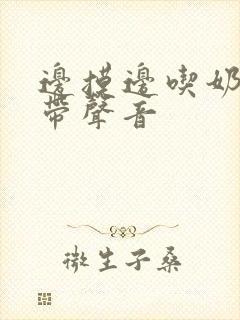 邊摸邊喫奶
帶聲音
微生子桑